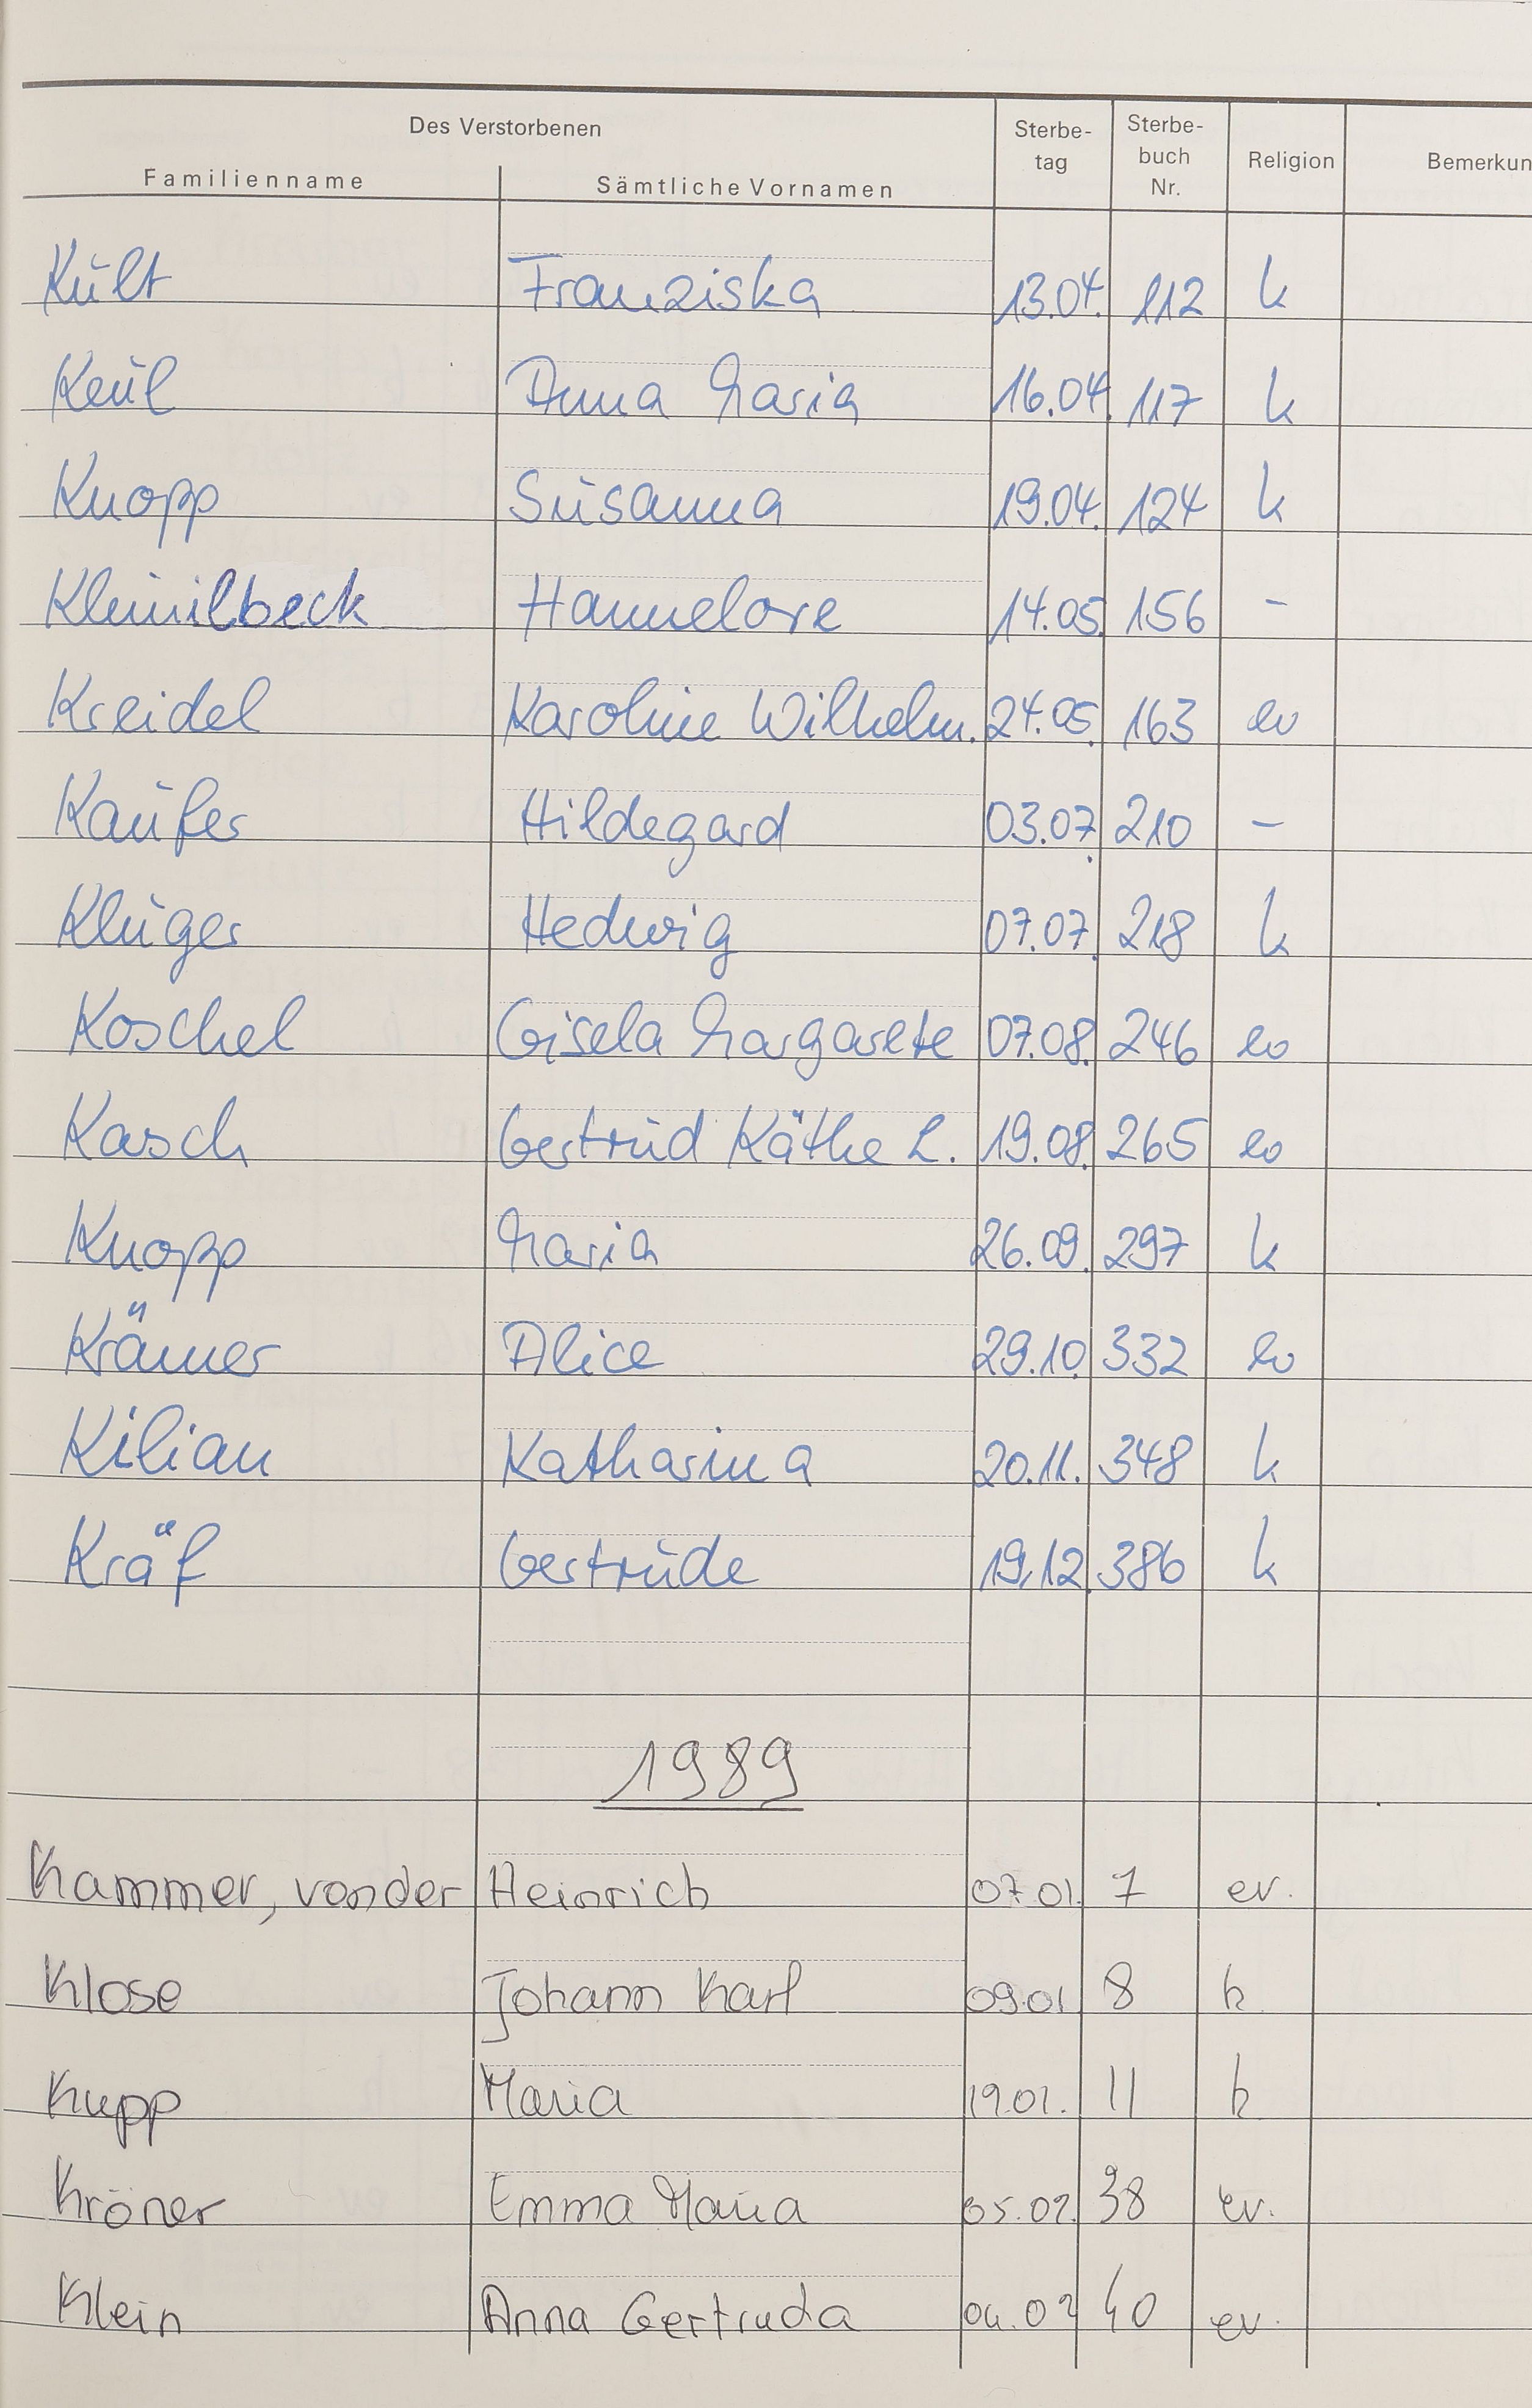 Des Verstorbenen
Familienname Sämtliche Vornamen Sterbe-tag Sterbe-buch Nr. Religion Bemerkun
Kult Franziska 13.04. 112 k
Keul Anna Maria 16.04. 117 k
Knopp Susanna 19.04. 124 k
Hannelore 14.05. 156 -
Kreidel Karoline Wilhelm. 24.05. 163 ev
Kaufer Hildegard 03.07. 210 -
Kluger Hedwig 07.07. 218 k
Koschel Gisela Margarete 07.08. 246 ev
Kasch Gertrud Käthe L. 19.08. 265 ev
Knopp Maria 26.09. 297 k
Krämer Alice 29.10. 332 ev
Kilian Katharina 20.11. 348 k
Kräf Gertrude 19.12. 386 k
1989
Kammer, von der Heinrich 07.01. 7 ev.
Klose Johann Karl 09.01 8 k
Kupp Maria 19.01. 11 k
Kröner Emma Maria 05.02. 38 ev.
Klein Anna Gertruda 04.02 40 ev.